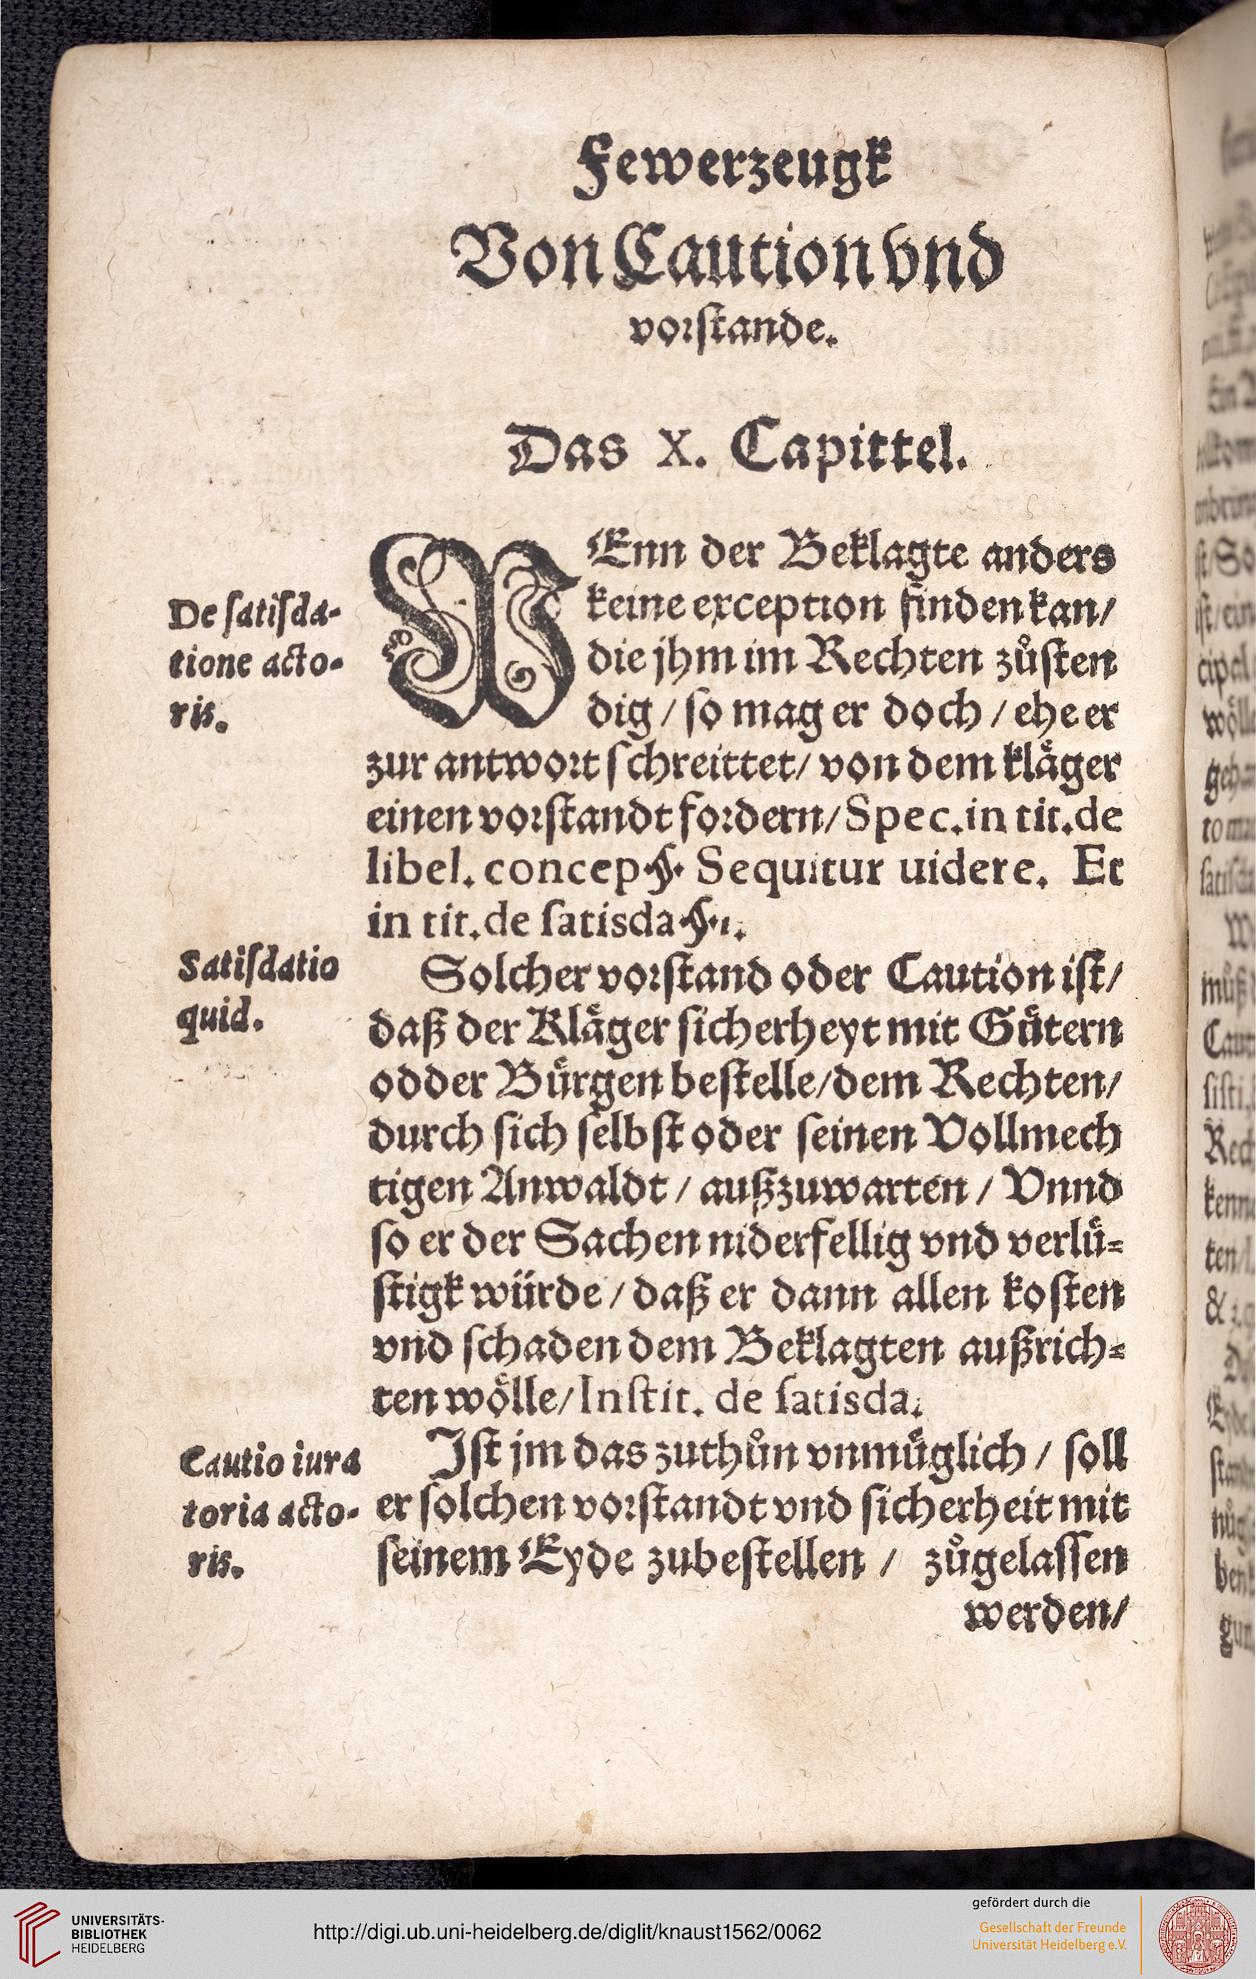 Fewerzeugk
Von Caution vnd
vorstande.
Das X. Capittel.
WEnn der Beklagte anders
keine exception finden kan/
die jhm im Rechten zůsten
dig / so mag er doch / ehe er
zur antwort schreittet/ von dem klaͤger
einen vorstandt fordern/ Spec. in tit. de
libel. concep. §. Sequitur uidere. Et
in tit. de satisda. §. 1.
De satisda-
tione acto-
ris.
Solcher vorstand oder Caution ist/
daß der Klaͤger sicherheyt mit Guͤtern
odder Buͤrgen bestelle/ dem Rechten/
durch sich selbst oder seinen Vollmech
tigen Anwaldt / außzuwarten / Vnnd
so er der Sachen niderfellig vnd verluͤ-
stigk würde / daß er dann allen kosten
vnd schaden dem Beklagten außrich-
ten woͤlle/ Instit. de satisda.
Satisdatio
quid.
Ist jm das zuthůn vnmuͤglich / soll
er solchen vorstandt vnd sicherheit mit
seinem Eyde zubestellen / zůgelassen
werden/
Cautio iura
toria acto-
ris.
UNIVERSITÄTS-
BIBLIOTHEK
HEIDELBERG
http://digi.ub.uni-heidelberg.de/diglit/knaust1562/0062
gefördert durch die
Gesellschaft der Freunde
Universität Heidelberg e.V.